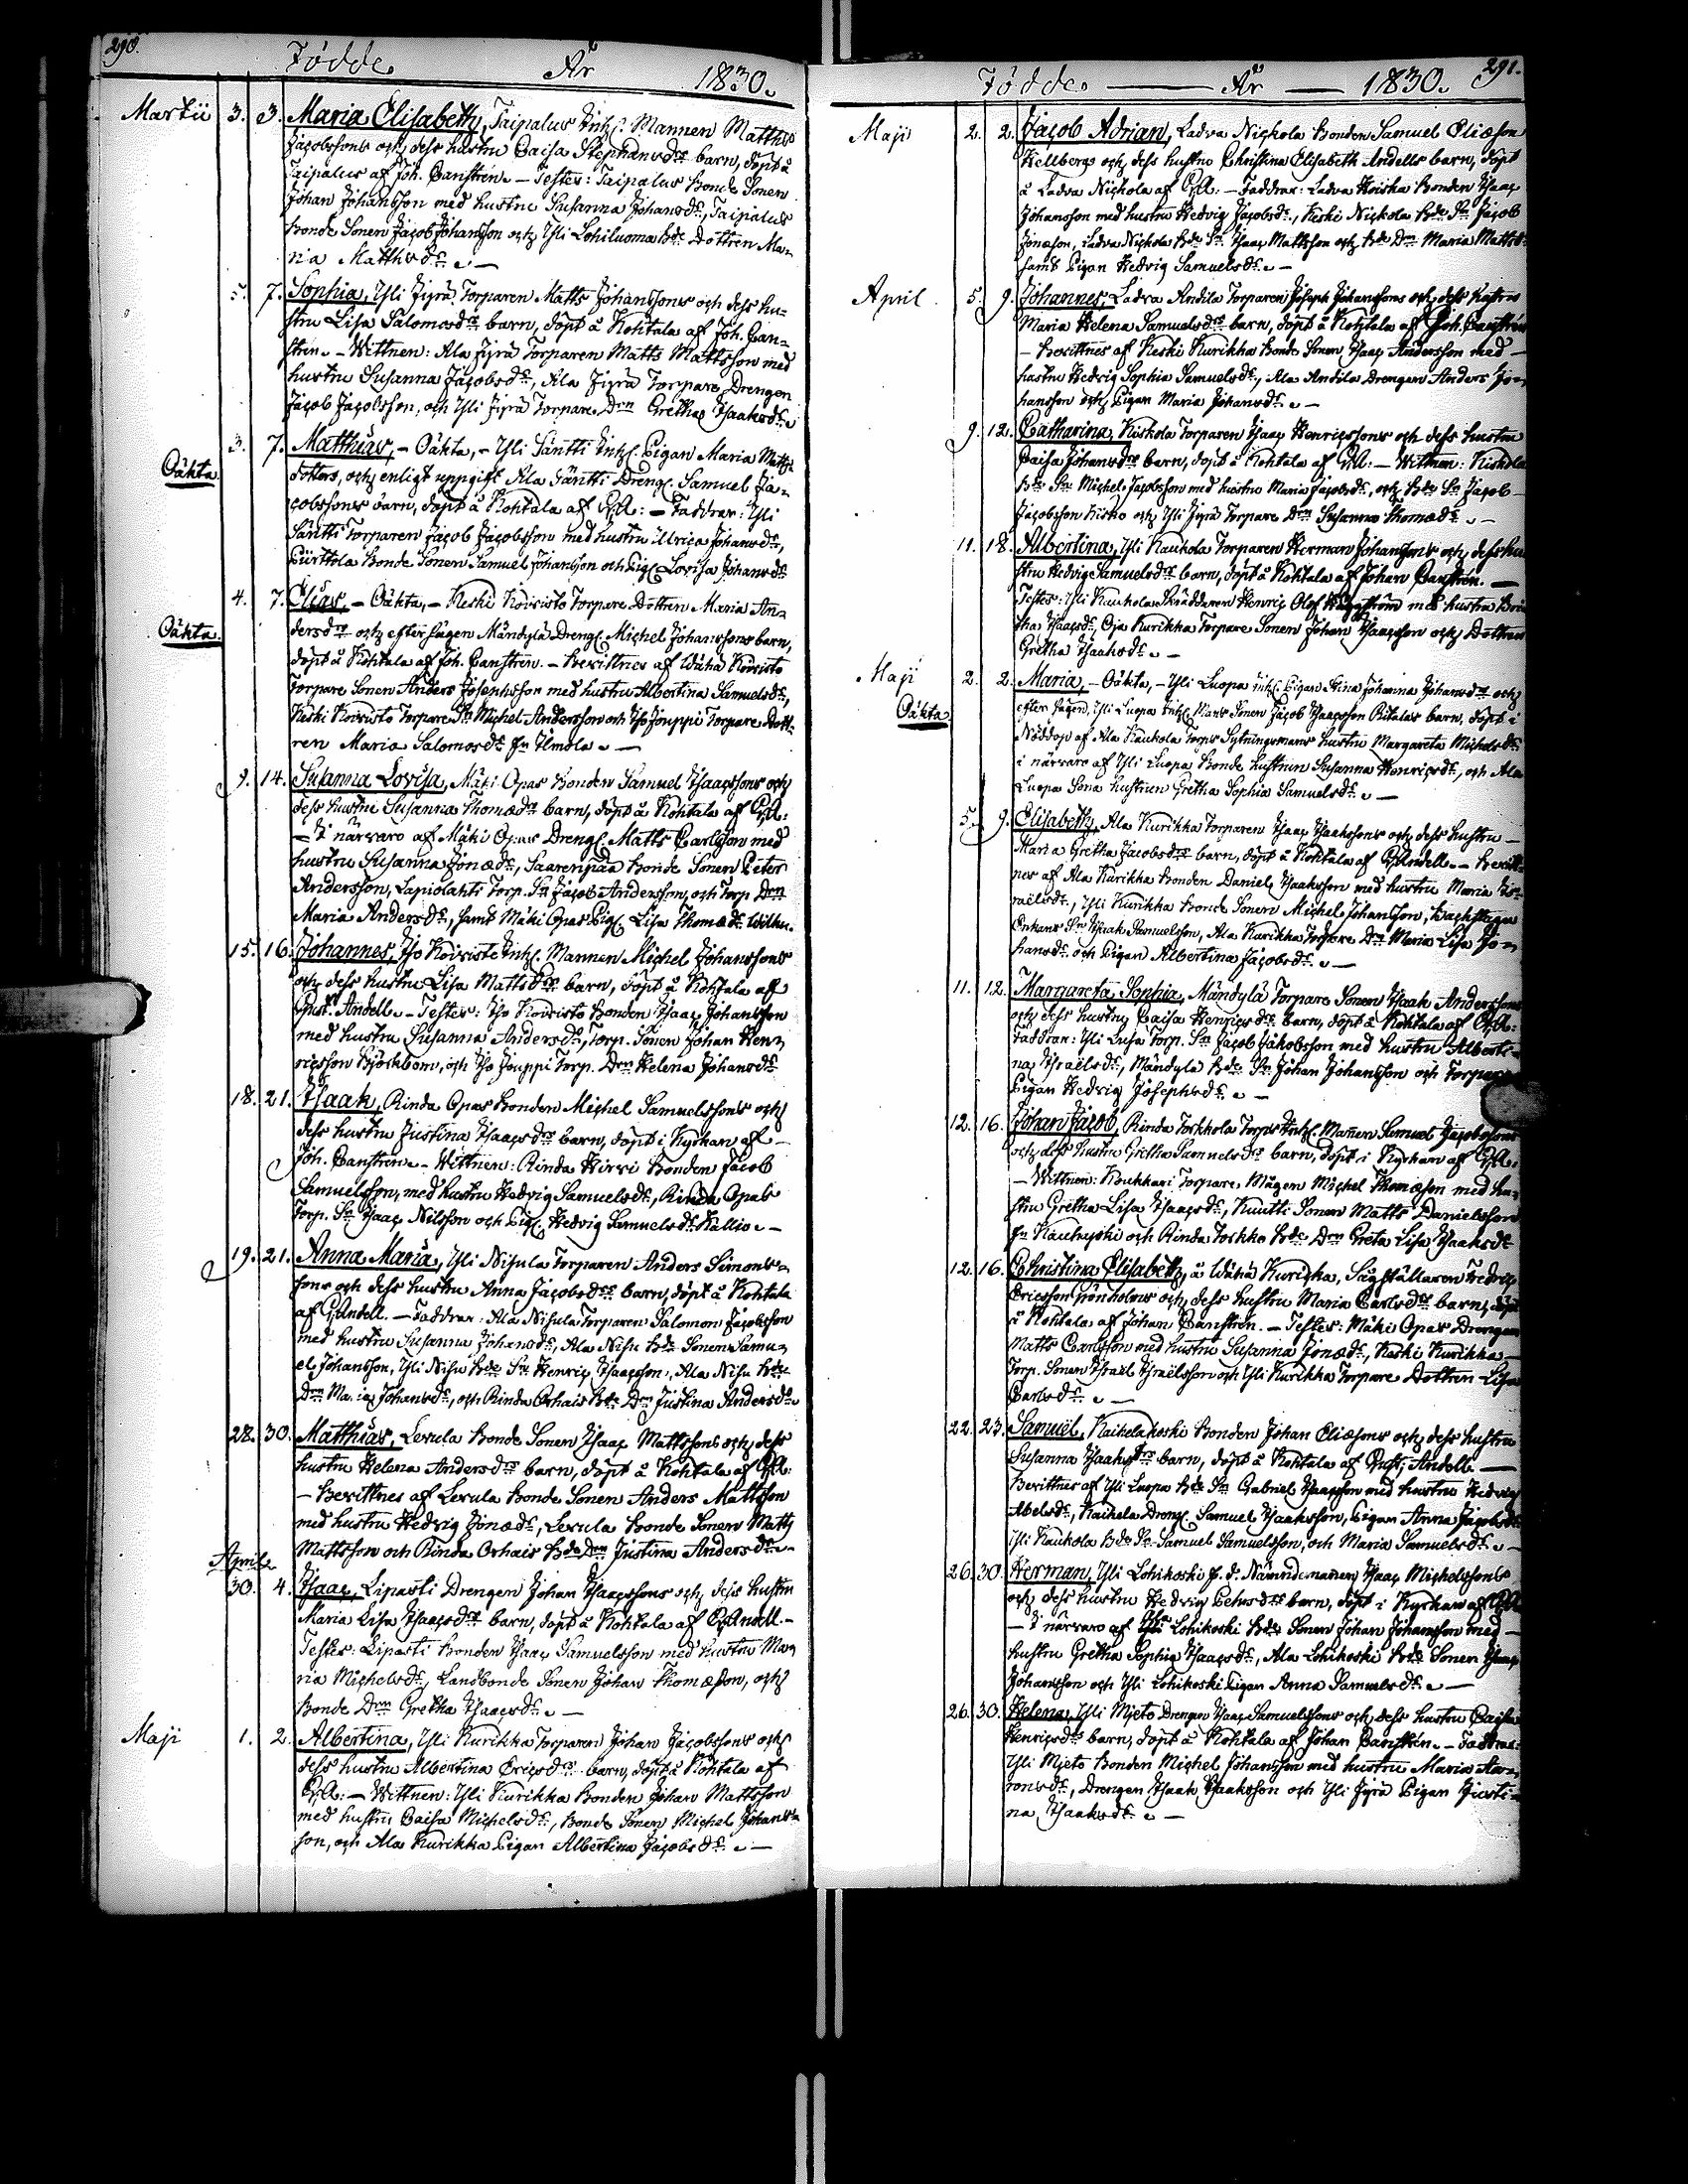 290.
Födde År 1830.
Martii 3. 3. Maria Elisabeth, Taipalus Inh. Mannen Matths
Jacobssons och dess hustru Caisa Stephansdr barn, döpt å
Taipalus af Joh. Canstrén. – Testes: Taipalus Bonde Sonen
Johan Johansson med hustru Susanna Johansdr, Taipalus
Bonde Sonen Jacob Johansson och Yli Lohiluoma Bde Dottren Ma-
ria Matthsdr. –
5. 7. Sophia, Yli Jyrä Torparen Matts Johanssons och dess hu-
stru Lisa Salomosdr barn, döpt å Kohtala af Joh. Can-
strén. – Wittnen: Ala Jyrä Torparen Matts Mattsson med
hustru Susanna Jacobsdr, Ala Jyrä Torpare Drengen
Jacob Jacobsson, och Yli Jyrä Torpare Drn Gretha Isaaksdr.
Oäkta 3. 7. Matthias, – Oäkta, – Yli Säntti Inh. Pigan Maria Matts
dotters, och enligt uppgift Ala Säntti Dreng. Samuel Ja-
cobssons barn, döpt å Kohtala af GA: – Faddrar: Yli
Säntti Torparen Jacob Jacobsson med hustru Ulrica Johansdr,
Piirttola Bonde Sonen Samuel Johansson och Pig. Lovisa Johansdr
Oäkta 4. 7. Elias, – Oäkta, – Keski Koivisto Torpare Dottren Maria An-
dersdrs och efter sägen Mändylä Dreng. Michel Johanssons barn,
döpt å Kohtala af Joh. Canstrén. – Bevittnes af Wähä Koivisto
Torpare Sonen Anders Josephsson med hustru Albertina Samuelsdr,
Keski Koivisto Torpare Sn Michel Andersson och Iso Jouppi Torpare Dott-
ren Maria Salomosdr fr Ilmola. –
9. 14. Susanna Lovisa, Mäki Opas Bonden Samuel Isaacssons och
dess hustru Susanna Thomædrs barn, döpt å Kohtala af GA:
– I närvaro af Mäki Opas Dreng. Matts Carlsson med
hustru Susanna Jonædr, Saarenpää Bonde Sonen Peter
Andersson, Lapiolahti Torp. Sn Jacob Andersson, och Torp Drn
Maria Andersdr, samt Mäki Opas Pig. Lisa Thomædr
15. 16. Johannes, Iso Koivisto Inh. Mannen Michel Johanssons
och dess hustru Lisa Mattsdrs barn, döpt å Kohtala af
Gust. Andell. – Testes: Iso Koivisto Bonden Isaac Johansson
med hustru Susanna Andersdr, Torp. Sonen Johan Hen-
ricsson Björkbom, och Iso Jouppi Torp. Drn Helena Johansdr
18. 21. Isaak, Rinda Opas Bonden Michel Samuelssons och
dess hustru Justina Isaacsdrs barn, döpt i Kyrkan af
Joh. Canstrén. – Wittnen: Rinda Hirvi Bonden Jacob
Samuelsson, med hustru Hedvig Samuelsdr, Rinda Opas
Torp. Sn Isaac Nilsson och Pig. Hedvig Samuelsdr Kallio. –
19. 21. Anna Maria, Yli Nisula Torparen Anders Simons-
sons och dess hustru Anna Jacobsdrs barn, döpt å Kohtala
af G. Andell. – Faddrar: Ala Nisula Torparen Salomon Jacobsson
med hustru Susanna Johansdr, Ala Nisu Bde Sonen Samu-
el Johansson, Yli Nisu Bde Sn Henric Isaacsson, Ala Nisu Bde
Drn Maria Johansdr, och Rinda Orhais Bde Drn Justina Andersdr.
28. 30. Matthias, Levula Bonde Sonen Isaac Mattssons och dess
hustru Helena Andersdrs barn, döpt å Kohtala af GA:
– Bevittnes af Levula Bonde Sonen Anders Mattsson
med hustru Hedvig Jonædr, Levula Bonde Sonen Matts
Mattsson och Rinda Orhais Bde Drn Justina Andersdr. –
April
30. 4. Isaac, Liparti Drengen Johan Isaacssons och dess hustru
Maria Lisa Isaacsdrs barn, döpt å Kohtala af G. Andell. –
Testes: Liparti Bonden Isaac Samuelsson med hustru Ma-
ria Michelsdr, Landbonde Sonen Johan Thomæson, och
Bonde Drn Gretha Isaacsdr. –
Maji 1. 2. Albertina, Yli Kurikka Torparen Johan Jacobssons och
dess hustru Albertina Ericsdrs barn, döpt å Kohtala af
GA: – Wittnen: Yli Kurikka Bonden Johan Mattsson
med hustru Caisa Michelsdr, Bonde Sonen Michel Johans-
son, och Ala Kurikka Pigan Albertina Jacobsdr. –
291.
Födde — År — 1830.
Maji 2. 2. Jacob Adrian, Ladva Nickola Bonden Samuel Eliæson
Hellbergs och dess hustru Christina Elisabeth Andells barn, döpt
å Ladva Nickola af GA. – Faddrar: Ladva Koiska Bonden Isaac
Johansson med hustru Hedvig Jacobsdr, Keski Nickola Bde Sn Jacob
Jonæson, Ladva Nickola Bde Sn Isaac Mattsson och Bde Drn Maria Mattsdr
samt Pigan Hedvig Samuelsdr. –
April 5. 9. Johannes, Ladva Andila Torparen Joseph Johanssons och dess hustru
Maria Helena Samuelsdrs barn, döpt å Kohtala af Joh. Canstrén
– Bevittnes af Keski Kurikka Bonde Sonen Isaac Andersson med –
hustru Hedvig Sophia Samuelsdr, Ala Andila Drengen Anders Jo-
hansson och Pigan Maria Johansdr. –
9. 12. Catharina, Kiskola Torparen Isaac Henricssons och dess hustru
Caisa Johansdrs barn, döpt å Kohtala af GA: – Wittnen: Kiskola
Bde Sn Michel Jacobsson med hustru Maria Jacobsdr, och Bde Sn Jacob
Jacobsson Kisko och Yli Jyrä Torpare Drn Susanna Thomædr. –
11. 18. Albertina, Yli Kaukola Torparen Herman Johanssons och dess hu
stru Hedvig Samuelsdrs barn, döpt å Kohtala af Johan Canstrén. –
Testes: Yli Kaukola Skräddaren Henric Olof Häggström med hustru Bri
tha Isaacsdr, Oja Kurikka Torpare Sonen Johan Isaacsson och Dottren
Gretha Isaaksdr. –
Maji 2. 2. Maria, – Oäkta, – Yli Luopa Inh. Pigan Stina Johanna Johansdrs och
Oäkta efter sägen, Yli Luopa Inh. Mans Sonen Jacob Isaacsson Ritalas barn, döpt i
Nöddop af Ala Kaukola Torps Sytningsmans hustru Margareta Michelsdr
i närvaro af Yli Luopa Bonde hustrun Susanna Henricsdr, och Ala
Luopa Sona hustrun Gretha Sophia Samuelsdr. –
5. 9. Elisabeth, Ala Kurikka Torparen Isaac Isaakssons och dess hustru –
Maria Gretha Jacobsdrs barn, döpt å Kohtala af G. Andell. – Bevitt-
nes af Ala Kurikka Bonden Daniel Isaaksson med hustru Maria Is-
raelsdr, Yli Kurikka Bonde Sonen Michel Johansson, Backstugu
Enkans Sn Isaak Samuelsson, Ala Kurikka Torpare Drn Maria Lisa Jo-
hansdr och Pigan Albertina Jacobsdr. –
11. 12. Margareta Sophia, Mändylä Torpare Sonen Isaak Anderssons
och dess hustru Caisa Henricsdrs barn, döpt å Kohtala af GA:
Faddrar: Yli Torp. Sn Jacob Jakobsson med hustru Alberti-
na Israelsdr, Mändylä Bde Sn Johan Johansson och Torpare
Pigan Hedvig Josephsdr. –
12. 16. Johan Jacob, Rinda Torkkola Torps Inh. Mannen Samuel Jacobssons
och dess hustru Gretha Samuelsdrs barn, döpt i Kyrkan af GA.
– Wittnen: Koukkari Torpare Mågen Michel Thomæson med hu-
stru Gretha Lisa Isaacsdr, Knutti Sonen Matts Danielsson
fr Kauhajoki och Rinda Torkko Bde Drn Greta Lisa Isaaksdr
12. 16. Christina Elisabeth, å Wähä Kuricka, Sågställaren Fredric
Ericsson Grönholms och dess hustru Maria Carlsdrs barn, döpt
å Kohtala af Johan Canstrén. – Testes: Mäki Opas Drengen
Matts Carlsson med hustru Susanna Jonædr, Keski Kurikka
Torp. Sonen Israel Israelsson och Yli Kurikka Torpare Dottren Lisa
Carlsdr. –
22. 23. Samuel, Kaikelakoski Bonden Johan Eliæsons och dess hustru
Susanna Isaaksdrs barn, döpt å Kohtala af Gust. Andell. –
Bevittnes af Yli Luopa Bde Sn Gabriel Isaacsson med hustru Hedvig
Abelsdr, Kaikela Dreng. Samuel Isaaksson, Pigan Anna Jacobsdr
Yli Kaukola Bde Sn Samuel Samuelsson, och Maria Samuelsdr. –
26. 30. Herman, Yli Lohikoski f. d. Nämndemannen Isaac Michelssons
och dess hustru Hedvig barn, döpt i Kyrkan af GA
– I närvaro af Ala Lohikoski Bde Sonen Johan Johansson med –
hustru Gretha Sophia Isaacsdr, Ala Lohikoski Bde Sonen Isaac
Johansson och Yli Lohikoski Pigan Anna Samuelsdr. –
26. 30. Helena, Yli Mieto Drengen Isaac Samuelssons och dess hustru Caisa
Henricsdrs barn, döpt å Kohtala af Johan Canstrén. – Faddrar:
Yli Mieto Bonden Michel Johansson med hustru Maria Aa-
ronsdr, Drengen Isaak Isaaksson och Yli Jyrä Pigan Justi-
na Isaaksdr. –